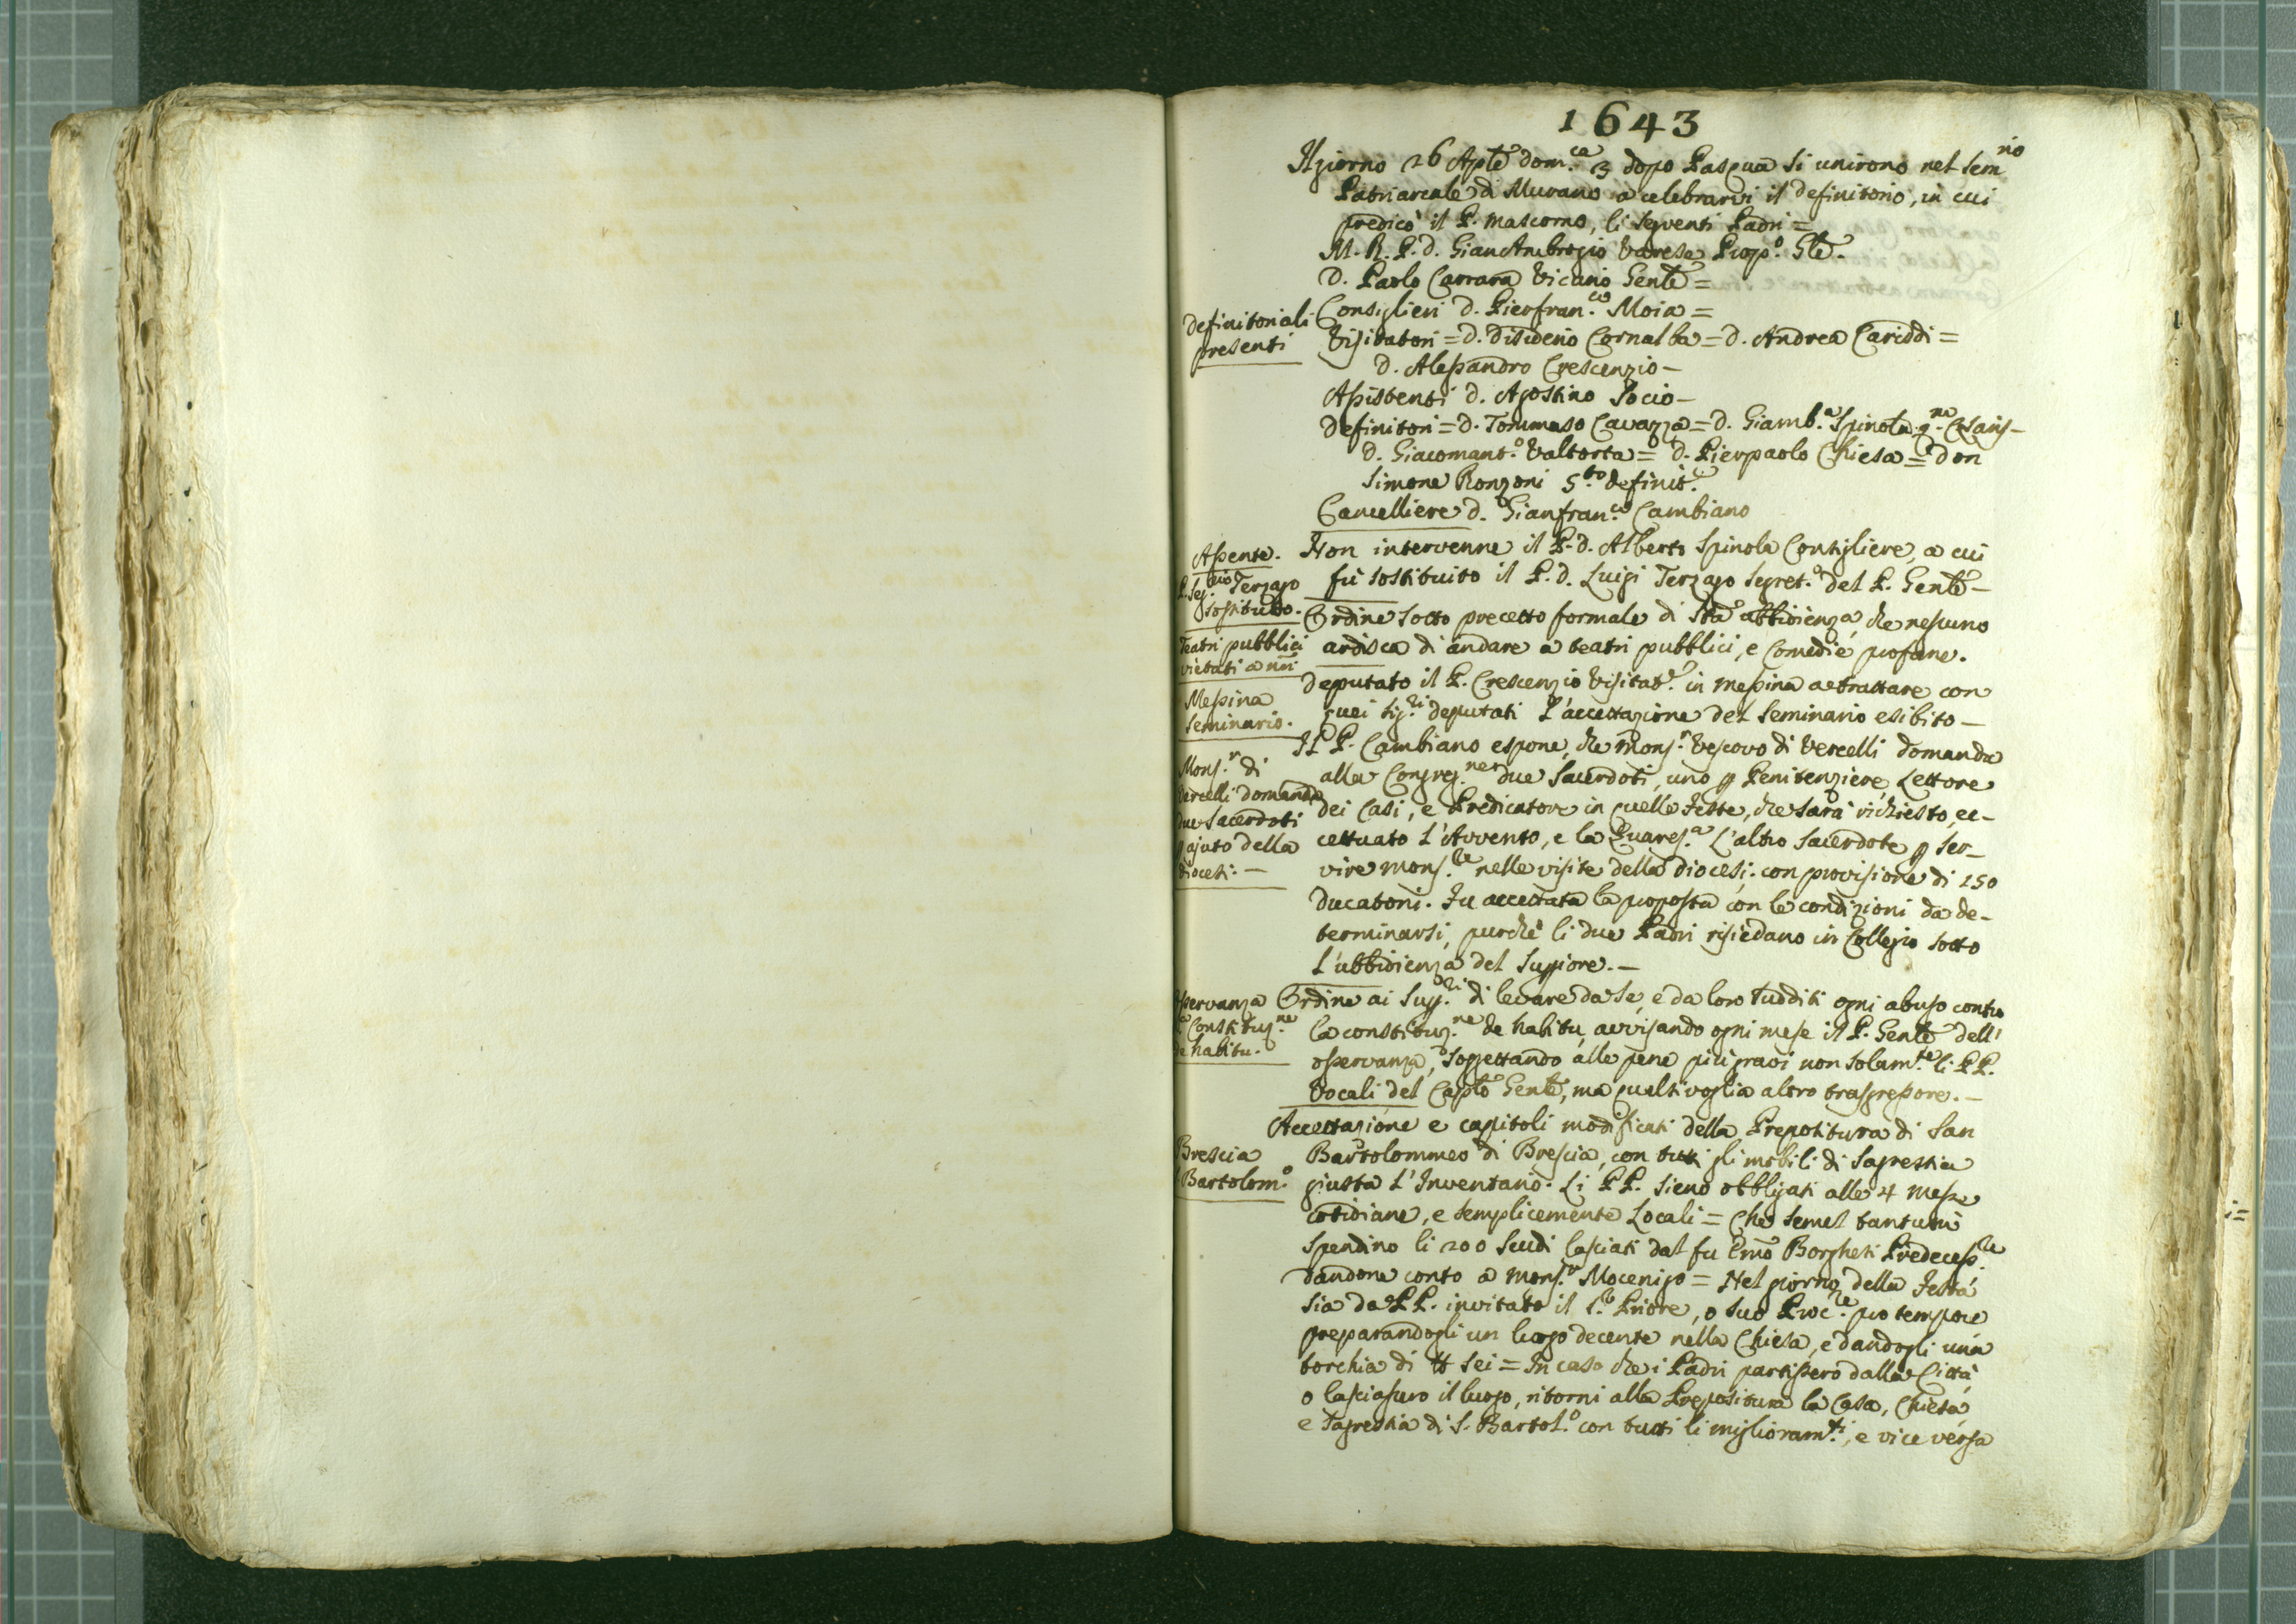 1643
Il giorno 26 Aple dom.ca 3 dopo Pasqua si unirono nel Sem.no
Patriarcale di Murano a celebrarvi il definitorio, in cui
predicò il P. Mascorno, li seguenti Padri =
M. R. P. d. Gian Ambrogio Varese Prop.o Gle.
D. Paolo Carrara Vicario Genle =
definitoriali
presenti
Consiglieri d. Pierfran.co Moia =
Visitatori = d. Disiderio Cornalba = d. Andrea Cariddi =
d. Alessandro Crescenzio –
Assistenti d. Agostino Socio –
Definitori = d. Tommaso Cavazza = d. Giamb.a Spinola
d. Giacomant.o Valtorta = d. Pierpaolo Chiesa = don
Simone Ronzoni 5.to definit.e
Cancelliere d. Gianfran.co Cambiano
Assente.
P. Seg.rio Terzago
sostituto.
Non intervenne il P. d. Alberto Spinola Consigliere, a cui
fù sostituito il P. d. Luigi Terzago Segret.o del P. Genle –
Teatri pubblici
vietati a nri
Ordine sotto precetto formale di Sta ubbidienza, che nessuno
ardisca di andare a teatri pubblici, e Comedie profane.
Messina
Seminario.
Deputato il P. Crescenzio Visitat.e in Messina a trattare con
quei Sig.ri deputati l'accettazione del Seminario esibito –
Mons.r di
Vercelli domanda
due Sacerdoti
p ajuto della
diocesi. –
Il P. Cambiano espone, che Mons.r Vescovo di Vercelli domanda
alla Congreg.ne due Sacerdoti, uno p Penitenziere, Lettore
dei Casi, e Predicatore in quelle Feste, che sarà richiesto, ec-
cettuato l'Avvento, e la Quares.a L'altro Sacerdote p ser-
vire Mons.re nelle visite della diocesi: con provisione di 150
ducatoni. Fu accettata la proposta con le condizioni da de-
terminarsi, purchè li due Padri risiedano in Collegio sotto
l'ubbidienza del Suppiore. –
Osservanza
Constituz.ne
de habitu.
Ordine ai Sup.ri di levare da se, e da loro sudditi ogni abuso contro
la constituz.ne de habitu, avvisando ogni mese il P. Genle dell'
osservanza, soggettando alle pene più gravi non solam.te li PP.
Vocali del Caplo Genle, ma qualsivoglia altro trasgressore. –
Brescia
S. Bartolom.o
Accettazione e capitoli modificati della Prepositura di San
Bartolommeo di Brescia, con tutti gli mobili di Sagrestia
giusta l'Inventario. Li PP. sieno obbligati alle 4 Messe
cotidiane, e semplicemente Locali = Che semel tantum
spendino li 200 Scudi lasciati dal fu Emo Borghesi Predecess.re
dandone conto a Mons.r Mocenigo = Nel giorno della Festa
sia da PP. invitato il S.r Priore, o suo Proc.re pro tempore
preparandogli un luogo decente nella Chiesa, e dandogli una
torchia di ℔ sei = In caso che i Padri partissero dalla Città
o lasciassero il luogo, ritorni alla Prepositura la Casa, Chiesa
e Sagrestia di S. Bartol.o con tutti li miglioram.ti, e vice versa